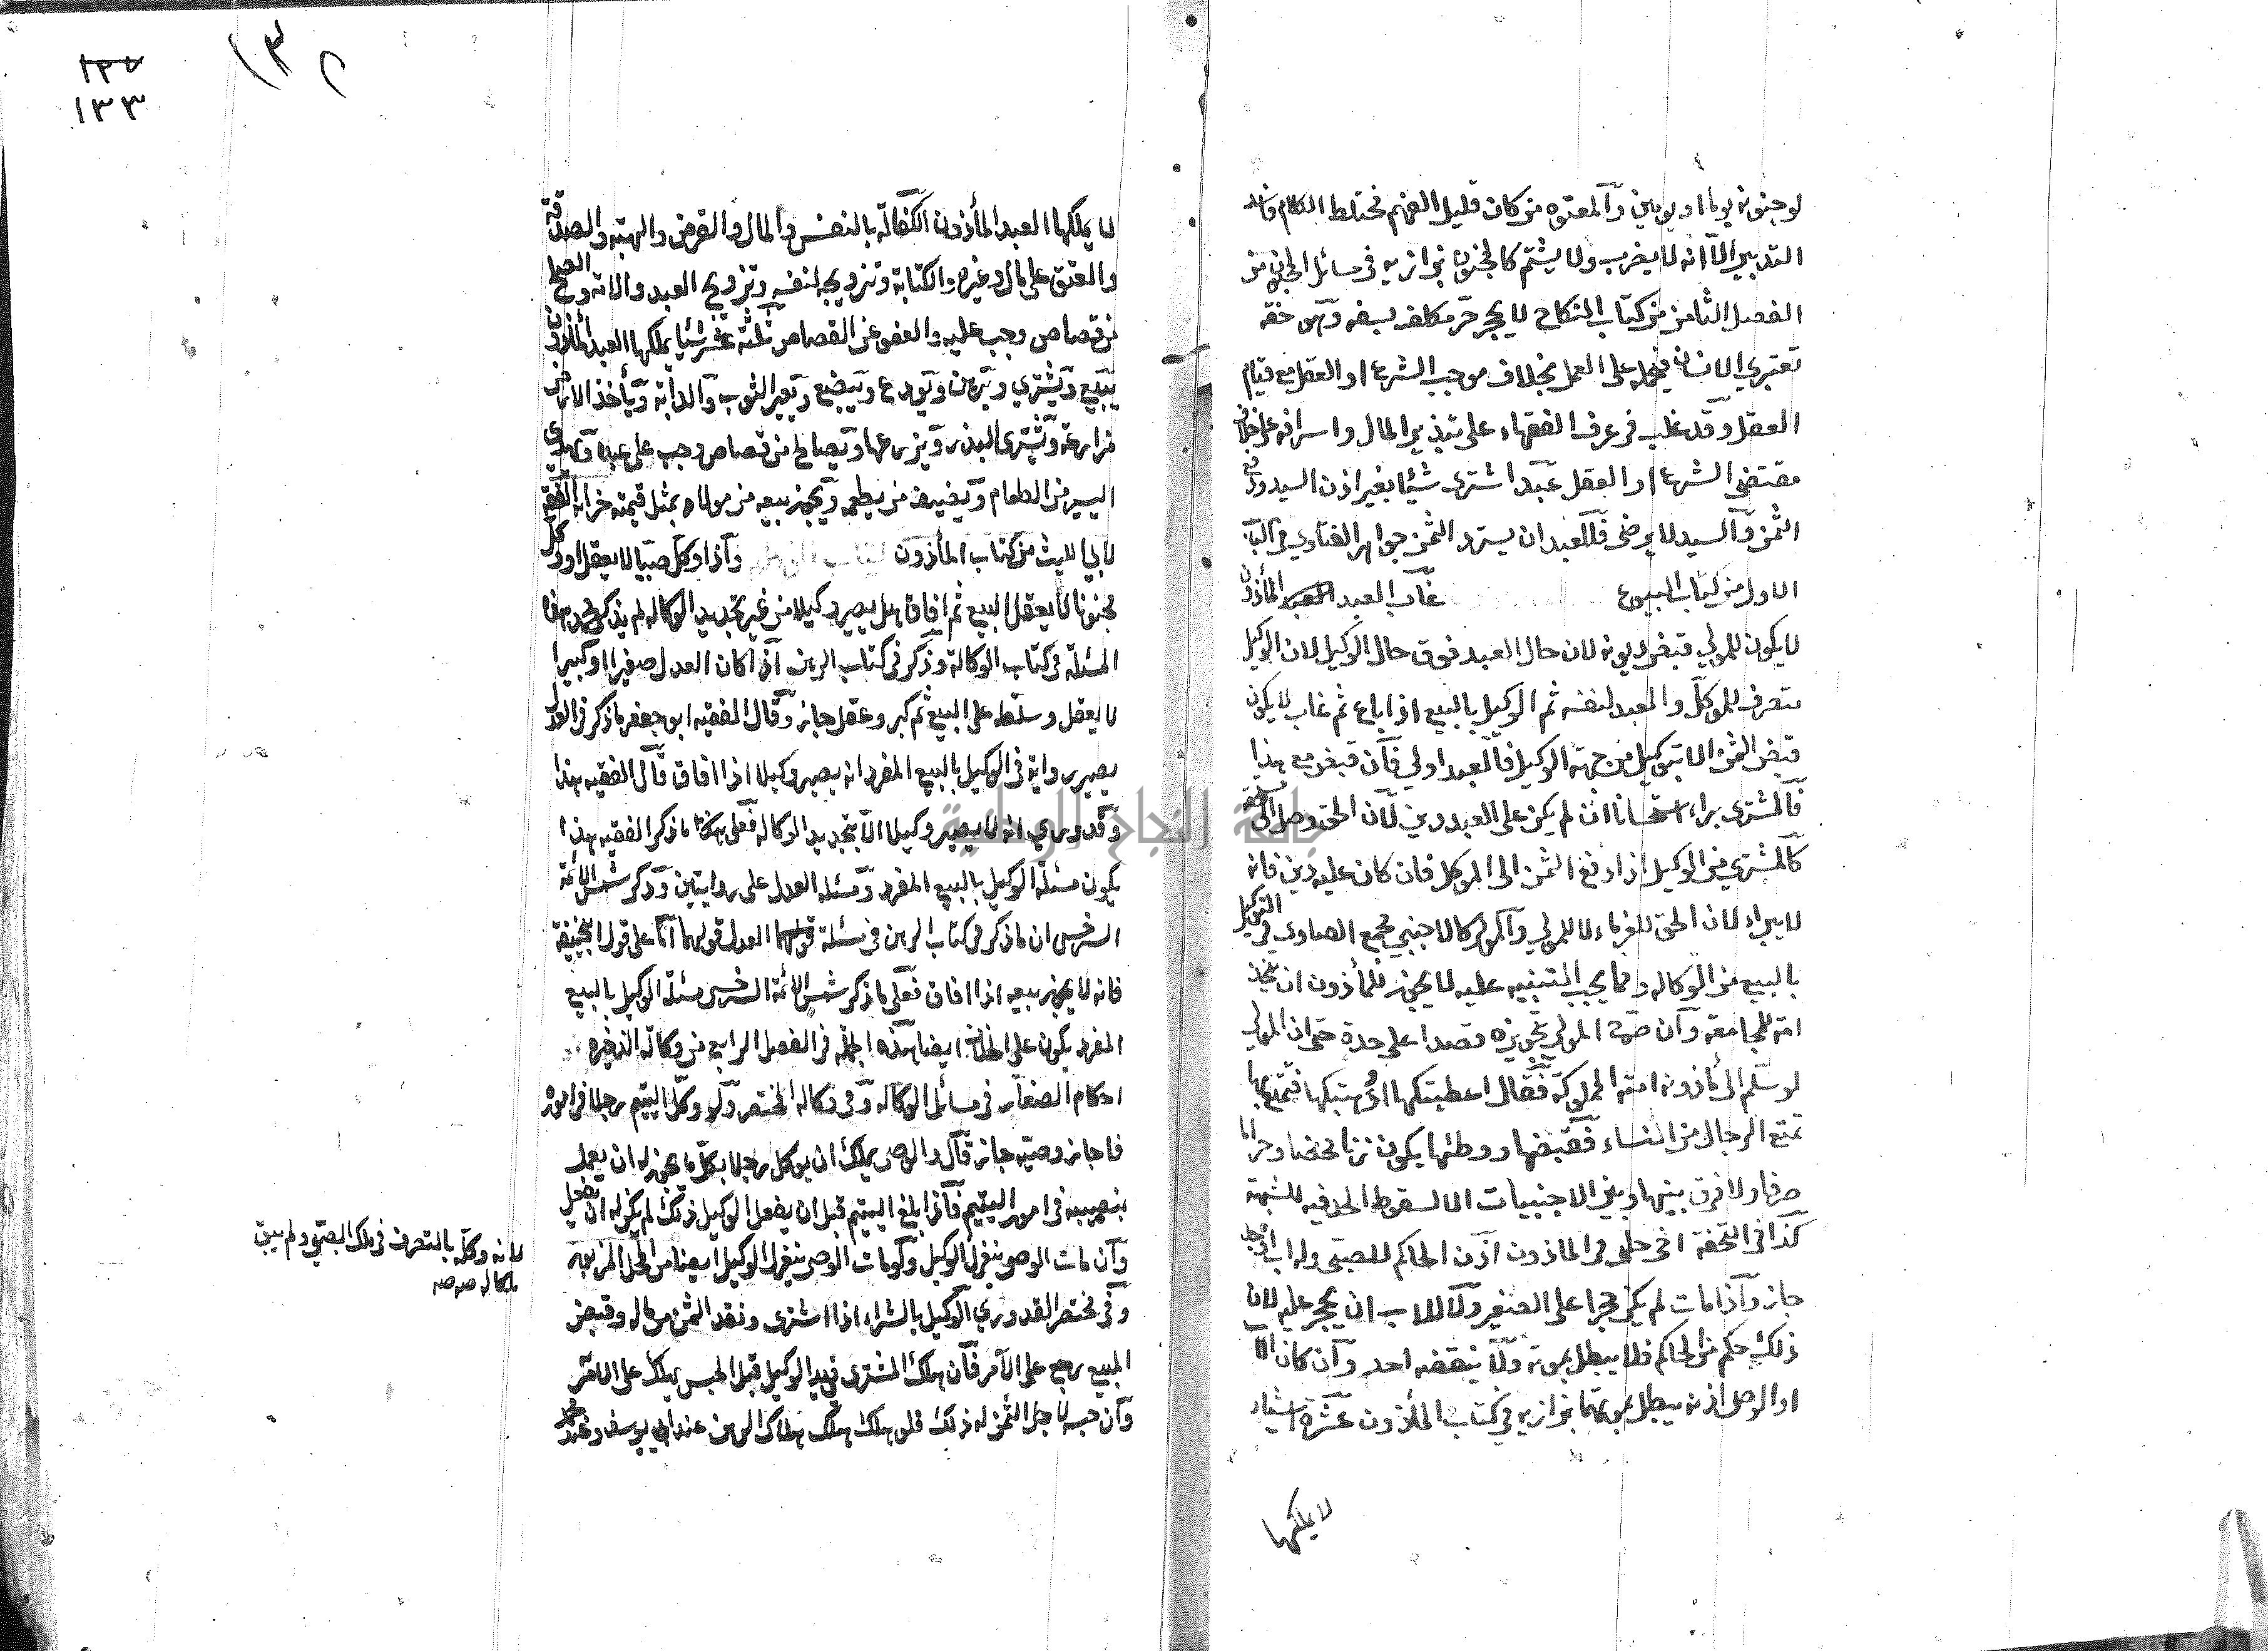 لو جنونه يوما او يومين والمعتوه من كان قليل الفهم مختلط الكلام فاسد
التدبير الا انه لا يضرب ولا يشتم كالمجنون بزازيه في مسائل الجنون من
الفصل الثامن من كتاب النكاح لا يحجر حر مكلف بسفه وهي خفة
تعتري الانسان فيحمله على العمل بخلاف موجب الشرع او العقل مع قيام
العقل وقد غلب في عرف الفقهاء على تبذير المال واسرافه على خلاف
مقتضى الشرع او العقل عبد اشترى شيئا بغير اذن السيد ودفع
الثمن والسيد لا يرضى فللعبد ان يسترد الثمن جواهر الفتاوي في الباب
الاول من كتاب البيوع غاب العبد المأذون
لا يكون للمولي قبض ديونه لان حال العبد فوق حال الوكيل لان الوكيل
متصرف للموكل والعبد لنفسه ثم الوكيل بالبيع اذا باع ثم غاب لا يكون
قبض الثمن الا بتوكيل من جهة الوكيل فالعبد اولي فان قبض مع هذا
فالمشترى براء استحسانا ان لم يكن على العبد دين لان الحق وصل الى مستحقه
كالمشتري من الوكيل اذا دفع الثمن الى الموكل فان كان عليه دين فانه
لا يبراء لان الحق للغرماء لا للمولي والمولى كالاجنبي مجمع الفتاوي في التوكيل
بالبيع من الوكاله ومما يجب التنبيه عليه لا يجوز للمأذون ان يتخذ
امة للمجامعة وان المولى تجويزه قصدا على حدة حتى ان المولي
لو سلم الى مأذونه امته المملوكة فقال اعطيتكها او وهبتكها فتمتع بها
تمتع الرجال من النساء فقبضها ووطئها يكون زنا محضا وحراما
صرفا ولا فرق بينها وبين الاجنبيات الا لسقوط الحد فيه للشبهة
كذا في التحفة اخي حلبي في الماذون اذن الحاكم للصبى وله اب او جد
جاز واذا مات لم يكن حجرا على الصغير ولا للاب ان يحجر عليه لان
ذلك حكم من الحاكم فلا يبطل بموته ولا ينقضه احد وان كان الاب
او الوصى اذنه يبطل بموتهما بزازيه في كتاب المأذون عشرة اشياء
لا يملكها
١٣٢
١٣٣
لا يملكها العبد المأذون الكفالة بالنفس والمال والقرض والهبة والصدقة
والعتق على مال وغيره والكتابة وتزويجه لنفسه وتزويج العبد والامة والصلح
من قصاص وجب عليه والعفو عن القصاص ثلثة عشر شيئا يملكها العبد المأذون
يبيع ويشتري ويرهن ويودع ويبضع ويعير الثوب والدابة ويأخذ الارض
مزارعة ويشترى البذر ويزرعها ويصالح من قصاص وجب على عبده ويهدي
اليسير من الطعام ويضيف من يطعمه ويجوز بيعه من مولاه بمثل قيمته خزانة الفقه
لابي الليث من كتاب المأذون واذا وكل صبيا لا يعقل او وكل
مجنونا لا يعقل البيع ثم افاق هل يصير وكيلا من غير تجديد الوكاله لم يذكر محمد هذه
المسئلة في كتاب الوكالة وذكر في كتاب الرهن اذا كان العدل صغيرا او كبيرا
لا يعقل وسلطه على البيع ثم كبر وعقل جاز وقال الفقيه ابو جعفر ما ذكر في العدل
يصير رواية في الوكيل بالبيع المفرد انه يصير وكيلا اذا افاق قال الفقيه هذا
وقد روي انه لا يصير وكيلا الا بتجديد الوكاله فعلى هذا ما ذكر الفقيه هذا
يكون مسئلة الوكيل بالبيع المفرد ومسئلة العدل على روايتين وذكر شمس الائمة
السرخسي ان ما ذكر في كتاب الرهن في مسئلة العدل قولهما اما على قول ابي حنيفة
فانه لا يجوز بيعه اذا افاق فعلى ما ذكر شمس الائمة السرخسى مسئلة الوكيل بالبيع
المفرد يكون على الخلاف ايضا هذه الجملة في الفصل الرابع من وكالة الذخيره
احكام الصغار في مسائل الوكالة وفي وكاله المختصر ولو وكل اليتيم رجلا في اموره
فاجاز وصيه جاز قال والوصى يملك ان يوكل رجلا بكل ما يجوز له ان يعمل
بنصيبه في امور اليتيم فاذا بلغ اليتيم قبل ان يفعل الوكيل ذلك لم يكن له ان يفعل
وان مات الوصي ينعزل الوكيل ولو مات الوصي ينعزل الوكيل ايضا من المحل المزبور
وفي مختصر القدوري الوكيل بالشراء اذا اشترى ونقد الثمن من ماله وقبض
المبيع يرجع على الآمر فان هلك المشترى في يد الوكيل قبل الحبس يهلك على الآمر
وان حبسه لاجل الثمن له ذلك فلو هلك هلك هلاك الرهن عند ابي يوسف وعند محمد
لانه وكله بالتصرف في ملك الصبي ولم يبق
جامعة النجاح الوطنية